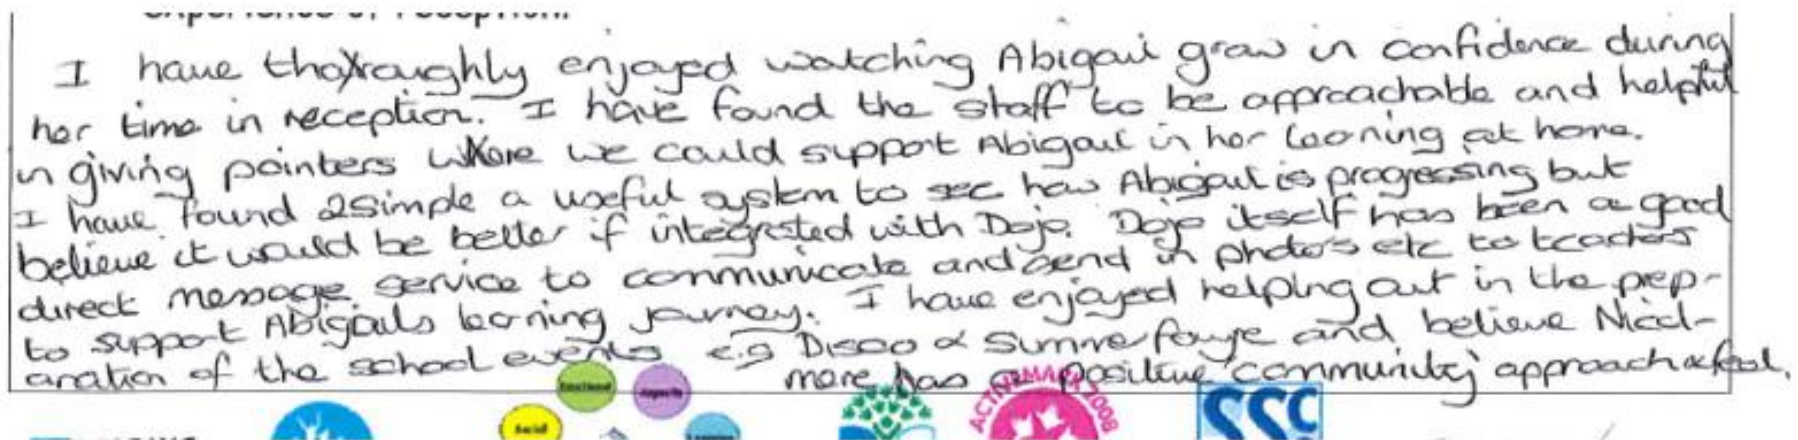 experience of reception.
I have thoroughly enjoyed watching Abigail grow in confidence during
her time in reception. I have found the staff to be approachable and helpful
in giving pointers where we could support Abigail in her learning at home.
I have found 2simple a useful system to see how Abigail is progressing but
believe it would be better if integrated with Dojo. Dojo itself has been a good
direct message service to communicate and send in photo's etc to teachers
to support Abigails learning journey. I have enjoyed helping out in the prep-
aration of the school events e.g Disco & Summer fayre and believe Nicol-
more has a positive 'community' approach & feel.
Emotional
Social
ACTIVEMARK 2008
SSC